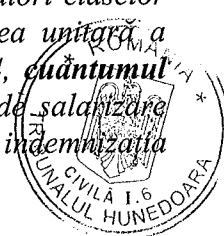 claselor
rea unitară a
cuantumul
de salarizare
indemnizația
ROMÂNIA
TRIBUNALUL HUNEDOARA
CIVILĂ I.6